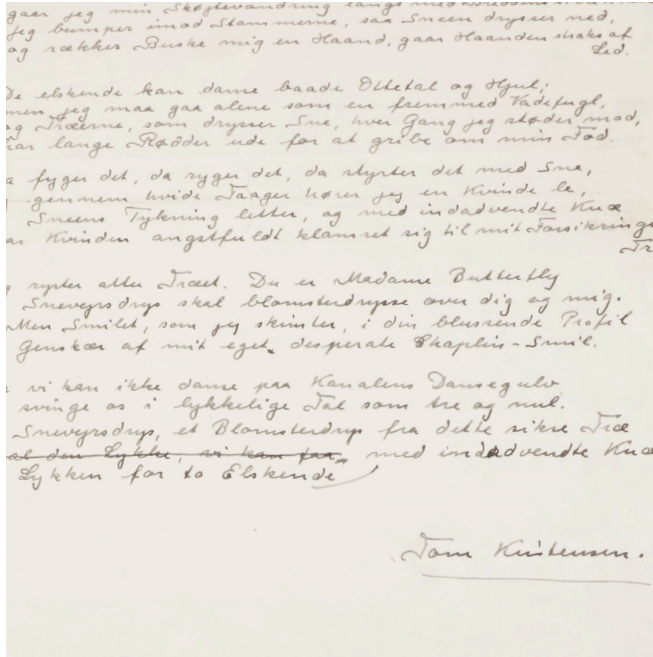 gaar jeg min Skøjtevandring langs med
jeg bumper imod Stammerne, saa Sneen drysser ned,
og rækker Buske mig en Haand, gaar Haanden straks af
Led.
De elskende kan danse baade Ottetal og Hjul;
men jeg maa gaa alene som en fremmed Vadefugl,
og Træerne, som drysser Sne, hver Gang jeg støder mod,
har lange Rødder ude for at gribe om min Fod.
a fyger det, da ryger det, da styrter det med Sne,
gennem hvide Taager hører jeg en Kvinde le,
Sneens Tykning letter, og med indadvendte Knæ
ar Kvinden angstfuldt klamret sig til mit Forsikrings
Tr
ryster atter Træet. Du er Madame Butterfly
Snevejrsdrys skal blomsterdrysse over dig og mig.
Men Smilet, som jeg skimter, i din blussende Profil
Genskær af mit eget, desperate Chaplin-Smil.
vi kan ikke danse paa Kanalens Dansegulv
svinge os i lykkelige Tal som tre og nul.
Snevejrsdrys, et Blomsterdrys fra dette sikre Træ
al den Lykke, vi kan faa, med indadvendte Knæ
Lykken for to Elskende
Tom Kristensen.